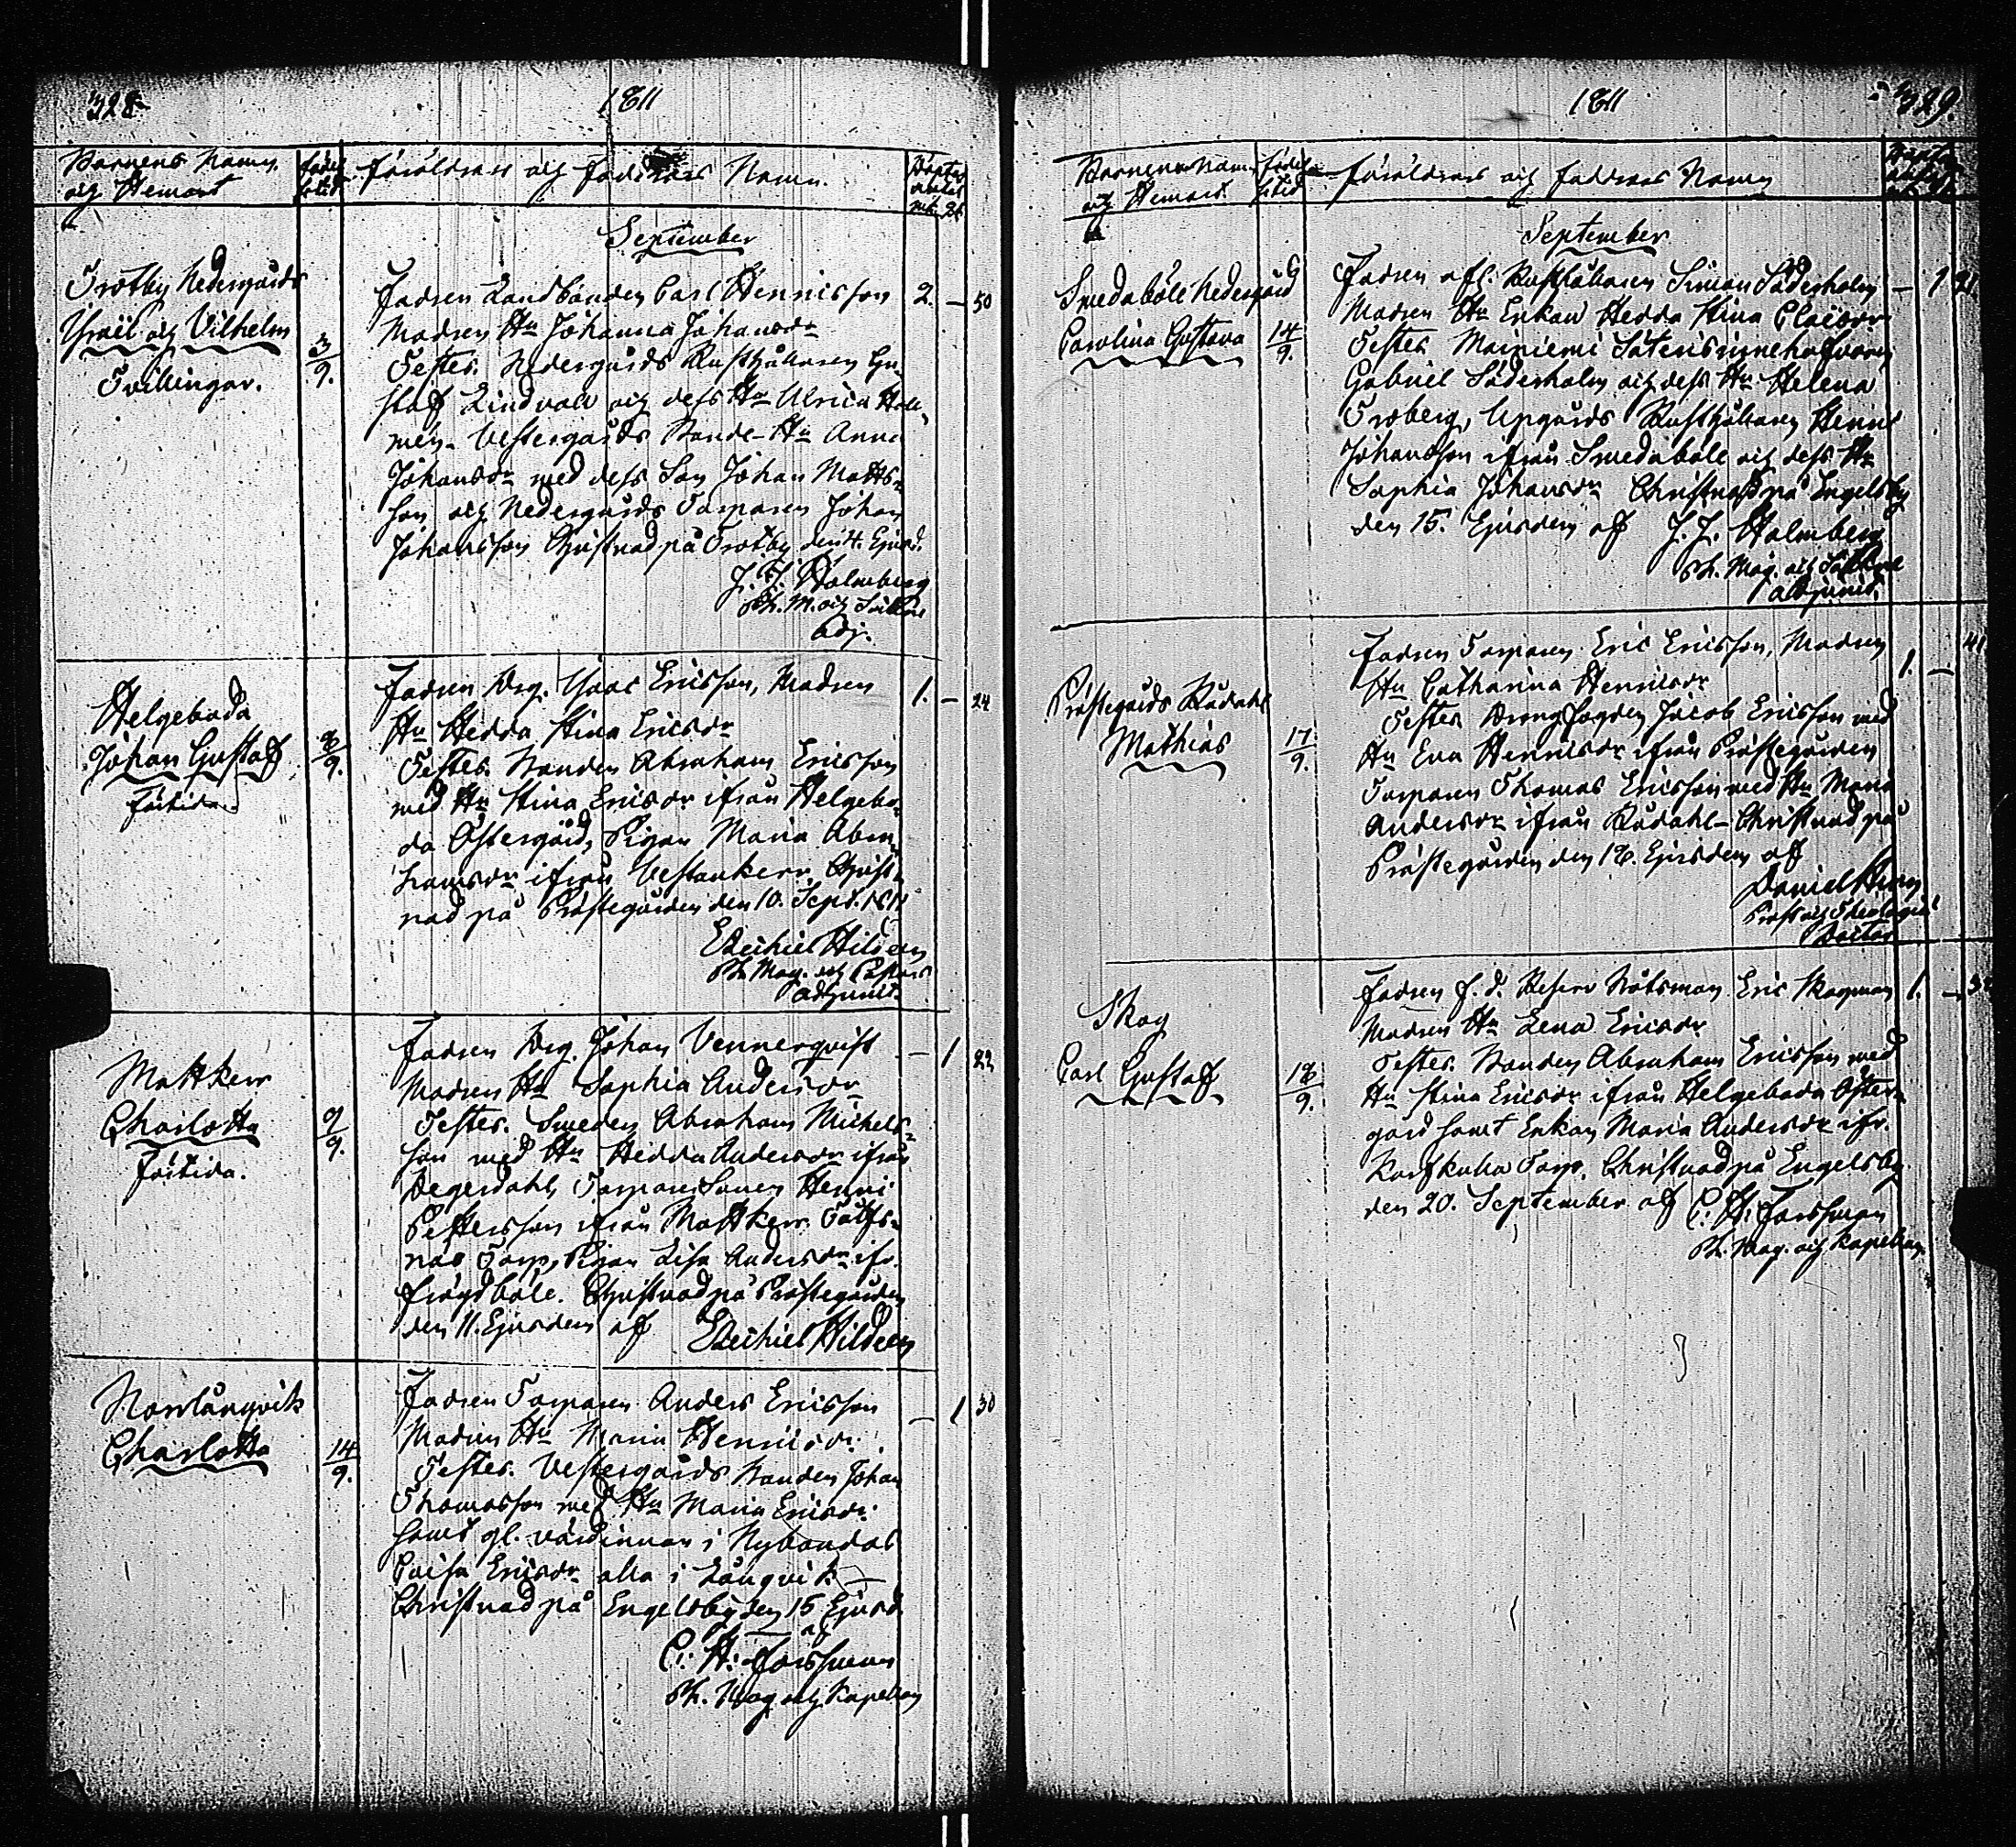 328.
1811
Barnens Namn.
och Hemort
födelse
tid
föräldrars och fadderas Namn.
September
Trotby Nedergårds
Israël och Vilhelm
Tvillingar.
3/9.
Fadren Landbonden Carl Henrisson
Modren Hu Johanna Johansdr
Testes. Nedergårds Rusthållaren Gu-
staf Lindvall och dess Hu Ulrica Hol-
mén. Vestergårds Bonde-Hu Anna
Johansdr med dess Son Johan Matts-
son och Nedergårds Torparen Johan
Johansson Christnad på Trotby den 4. Ejusd.
J. J. Holmberg
Ph. M. och
Adj.
2. – 50
Helgeboda
Johan Gustaff
förtida.
8/9.
Fadren Drg. Isaac Ericsson, Modren
Hu Hedda Stina Ericsdr
Testes. Bonden Abraham Ericsson
med Hu Stina Ericsdr ifrån Helgebo-
da Östergård, Pigan Maria Abra-
hamsdr ifrån Vestankerr. Christ-
nad på Prästegården den 10. Sept. 1811
Ezechiel Hildeen
Ph. Mag. och Pastors
adjunct.
1. – 24
Mattkerr
Charlotta
förtida.
9/9.
Fadren Drg. Johan Vennerqvist
Modren Hu Sophia Andersdr
Testes. Smeden Abraham Michels-
son med Hu Hedda Andersdr ifrån
Degerdahl, Torpare Sonen Henric
Pettersson ifrån Mattkerr
Torp, Pigan Lisa Andersdr ifr.
fröydböle. Christnad på Prästegården
den 11. Ejusdem af Ezechiel Hildeen
– 1 22
Norrlångvik
Charlotta
14/9.
Fadren Torparen Anders Ericsson
Modren Hu Maria Henricsdr.
Testes. Vestergårds Bonden Johan
Thomasson med Hu Maria Ericsdr.
samt gl. värdinnan i Nybondas
Caisa Ericsdr alla i Långvik. –
Christnad på Engelsby den 15 Ejusd.
af
C. H. Forssman
Ph. Mag och Kapellan
– 1 30
1811
329.
Barnens Namn
och Hemort
födelse
tid
föräldrars och fadderas Namn
September
Smedaböle Nedergård
Carolina Gustava
14/9.
Fadren afl. Rusthållaren Simon Söderholm
Modren Hu Enkan Hedda Stina Claesdr
Testes Mainiemi Säteriinnehafvaren
Gabriel Söderholm och dess Hu Helena
Troberg, Upgårds Rusthållaren Henric
Johansson ifrån Smedaböle och dess Hu
Sophia Johansdr Christnad på Engelsby
den 15. Ejusdem af J. J. Holmberg
Ph. Mag. och
adjunct.
– 1 21
Prästegårds Rådahl
Mathias
17/9.
Fadren Torparen Eric Ericsson, Modren
Hu Catharina Henricsdr
Testes Drengfogden Jacob Ericsson med
Hu Eva Henricsdr ifrån Prästegården
Torparen Thomas Ericsson med Hu Maria
Andersdr ifrån Rådahl – Christnad på
Prästegården den 18. Ejusdem af
Daniel
Prost och Theologiæ
Doctor
1. – 41
Skog
Carl Gustaff
18/9.
Fadren f. d. Reserv Båtsman Eric Skogman
Modren Hu Lena Ericsdr
Testes. Bonden Abraham Ericsson med
Hu Stina Ericsdr ifrån Helgeboda Öster-
gård samt Enkan Maria Andersdr ifr.
Korskulla Torp. Christnad på Engelsby
den 20. September af C. H. Forssman
Ph. Mag. och Kapellan.
1. –